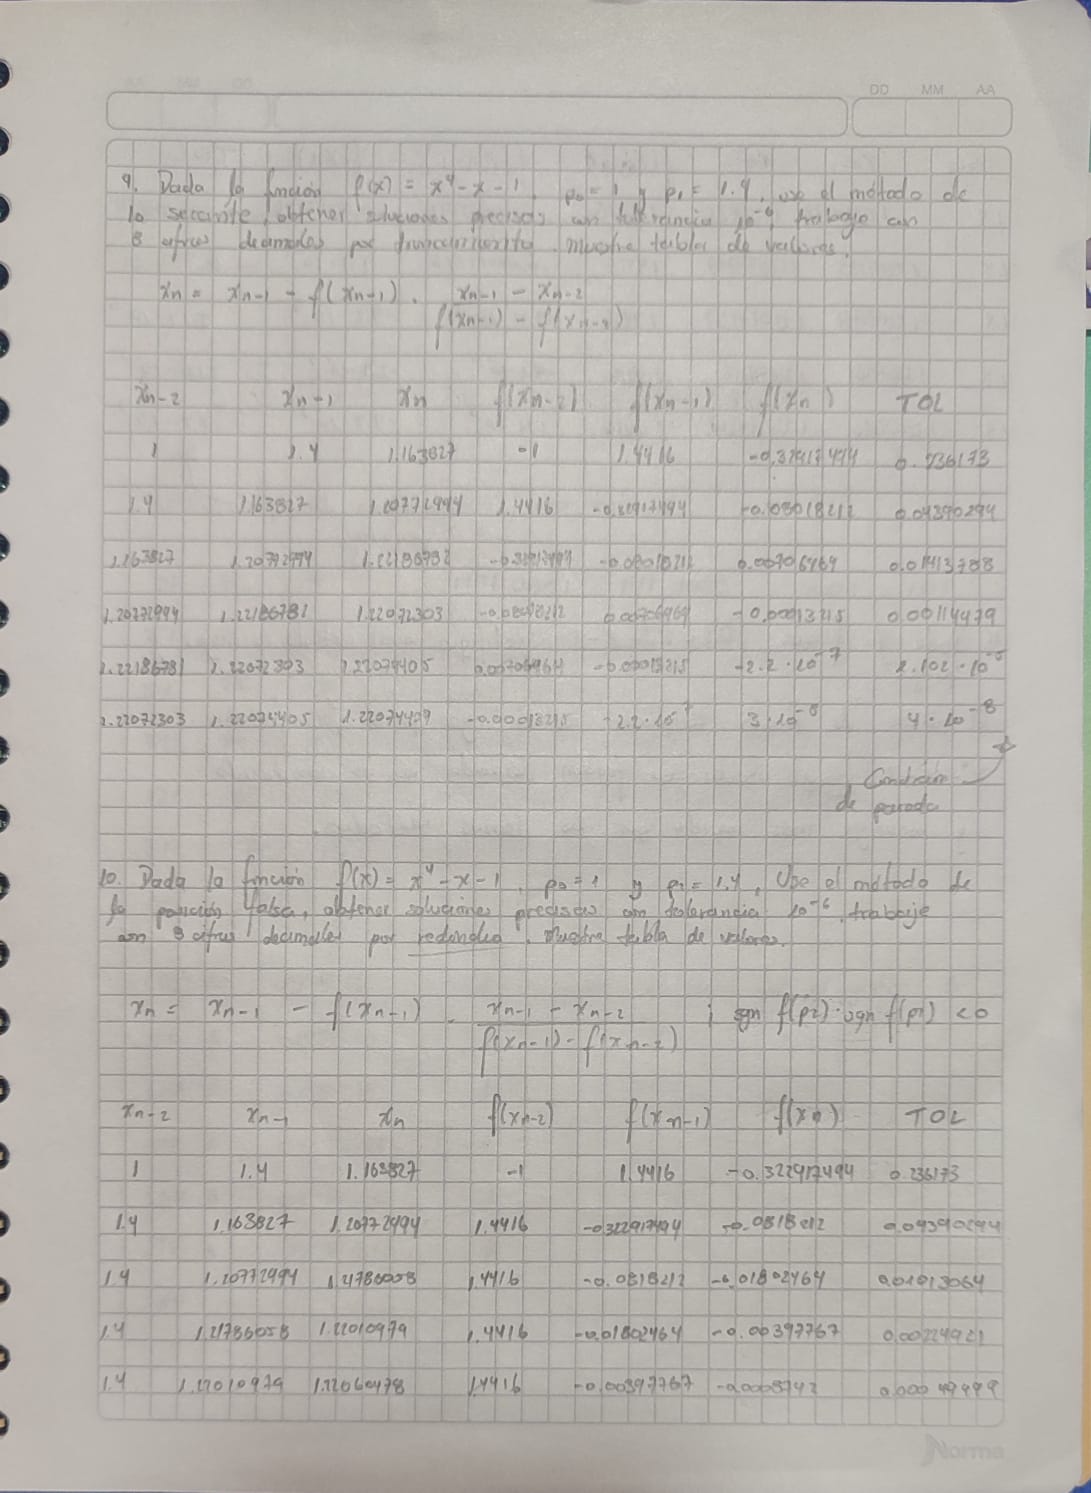 DD MM AA
9. Dada la función f(x) = x⁴ - x - 1, p₀ = 1 y p₁ = 1.4, use el método de
la secante, obtener soluciones precisas con tolerancia 10⁻⁶, trabaje con
8 cifras decimales por truncamiento. muestre tablas de valores.
xn = xn-1 - f(xn-1) . xn-1 - xn-2
f(xn-1) - f(xn-2)
xn-2 xn-1 xn f(xn-2) f(xn-1) f(xn) TOL
1 1.4 1.163827 -1 1.4416 0.236173
1.4 1.163827 1.20772994 1.4416 0.04390294
1.163827 1.20772994 1.22186782 0.00706464 0.01413788
1.20772994 1.22186781 1.22072303 0.00706464 -0.00013215 0.00114479
1.22186781 1.22072303 1.22074405 0.00706464 -0.00013215 -2.2·10⁻⁷ 2.102·10⁻⁵
1.22072303 1.22074405 1.22074409 -0.00013215 3·10⁻⁸ 4·10⁻⁸
Condición
de parada
10. Dada la función f(x) = x⁴ - x - 1, p₀ = 1 y p₁ = 1.4, Use el método de
la posición falsa, obtener soluciones precisas con tolerancia 10⁻⁶, trabaje
con 8 cifras decimales por redondeo. Muestre tabla de valores.
xn = xn-1 - f(xn-1) . xn-1 - xn-2 ; sgn f(p2) · sgn f(p1) < 0
f(xn-1) - f(xn-2)
xn-2 xn-1 xn f(xn-2) f(xn-1) f(xn) TOL
1 1.4 1.163827 -1 1.4416 -0.322917494 0.236173
1.4 1.163827 1.20772994 1.4416 -0.322917494 -0.0818212 0.04390294
1.4 1.20772994 1.4416 -0.0818212 -0.01802464 0.01013064
1.4 1.21786058 1.22010979 1.4416 -0.01802464 -0.00397767 0.00224921
1.4 1.22010979 1.22060478 1.4416 -0.00397767 -0.0008742 0.00049499
Norma